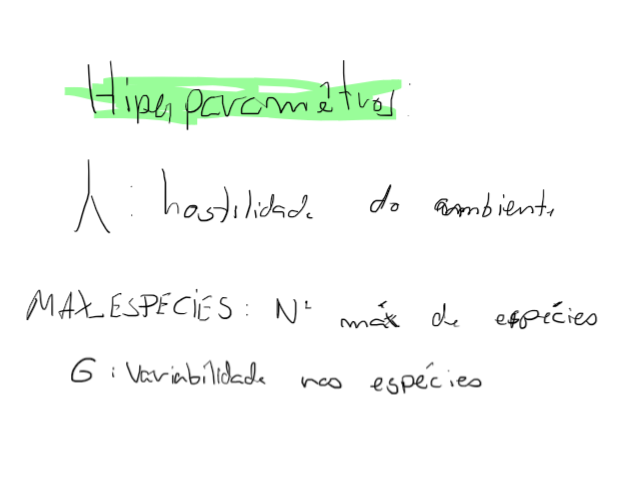 Hiperparamêtros:
λ: hostilidade do ambiente
MAX_ESPÉCIES: Nº máx de espécies
G: Variabilidade nas espécies